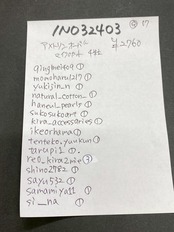 17
INO32403
¥2760
qingbei409 ①
momoharu1217 ①
yukijin_n ①
natural_cotton_ ①
haneul_pearls ①
sukosukoart ①
kira_accessories ①
ikeorihana ①
tenteko.yuukun ①
tarupi1. ①
reo_kira2rie ③
shino2782 ①
sayu532 ①
samamiya11 ①
si__na ①